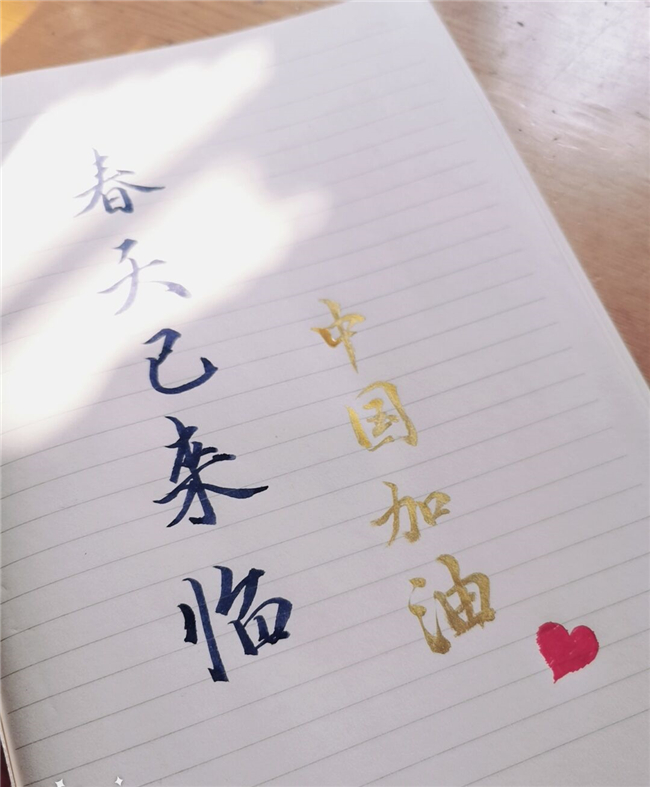 春天已来临
中国加油